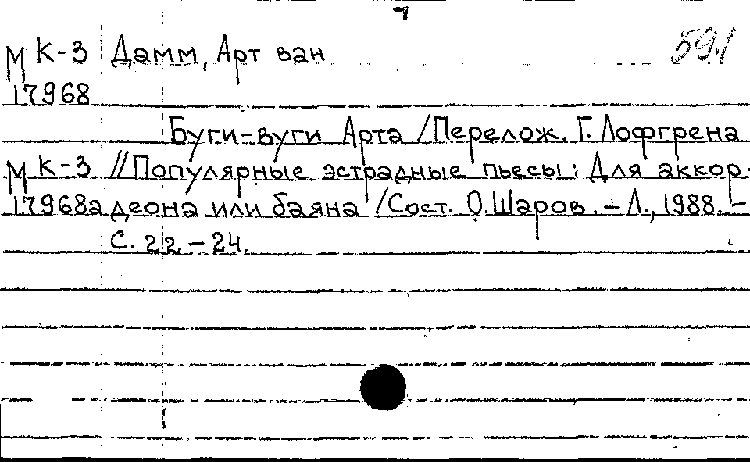 М К-3 Дамм, Арт ван 59.1
17968
Буги-вуги Арта /Перелож. Г. Лофгрена
М К-3 //Популярные эстрадные пьесы: Для аккор-
17968а деона или баяна /Сост. О.Шаров. – Л., 1988. –
С. 22. – 24.